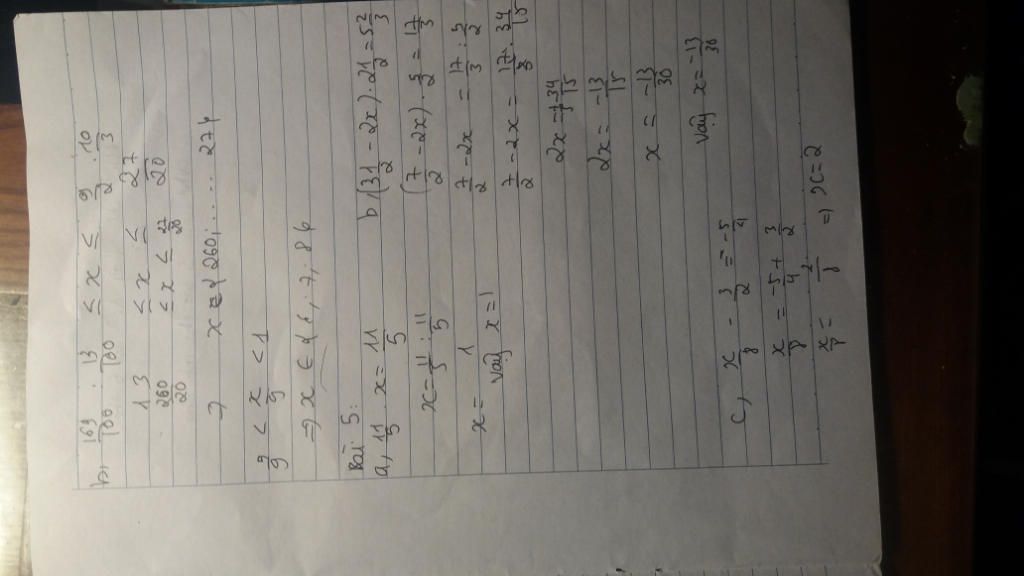 b, 169/100 : 13/100 ≤ x ≤ 9/2 . 10/3
13 ≤ x ≤ 27/20
260/20 ≤ x ≤ 27/20
⇒ x ∈ { 260; ...... 27 }
5/9 < x/9 < 1
⇒ x ∈ { 6, 7, 8 }
Bài 5:
a, 11/5 . x = 11/5
x = 11/5 : 11/5
x = 1
Vậy x = 1
b, (31/2 - 2x) . 21/2 = 5 2/3
(7/2 - 2x) . 5/2 = 17/3
7/2 - 2x = 17/3 : 5/2
7/2 - 2x = 17/3 : 34/15
2x = 7/2 - 34/15
2x = -13/15
x = -13/30
Vậy x = -13/30
c, x/8 - 3/2 = -5/4
x/8 = -5/4 + 3/2
x/8 = 2/8 ⇒ x = 2